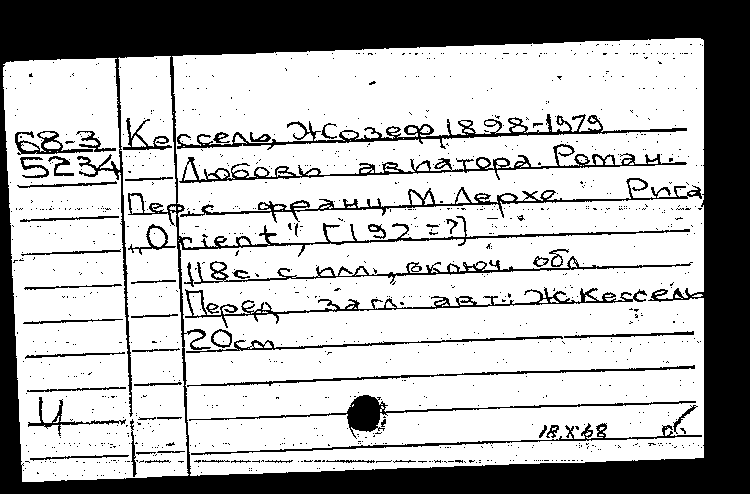 68-3 Кессель, Жозеф, 1898-1979
5234 Любовь авиатора. Роман.
Пер. с франц. М. Лерхе. Рига,
„Orient", [192=?]
118с. с илл., включ. обл.
Перед загл. авт.: Ж. Кессель
20см
Ч
18.X 68